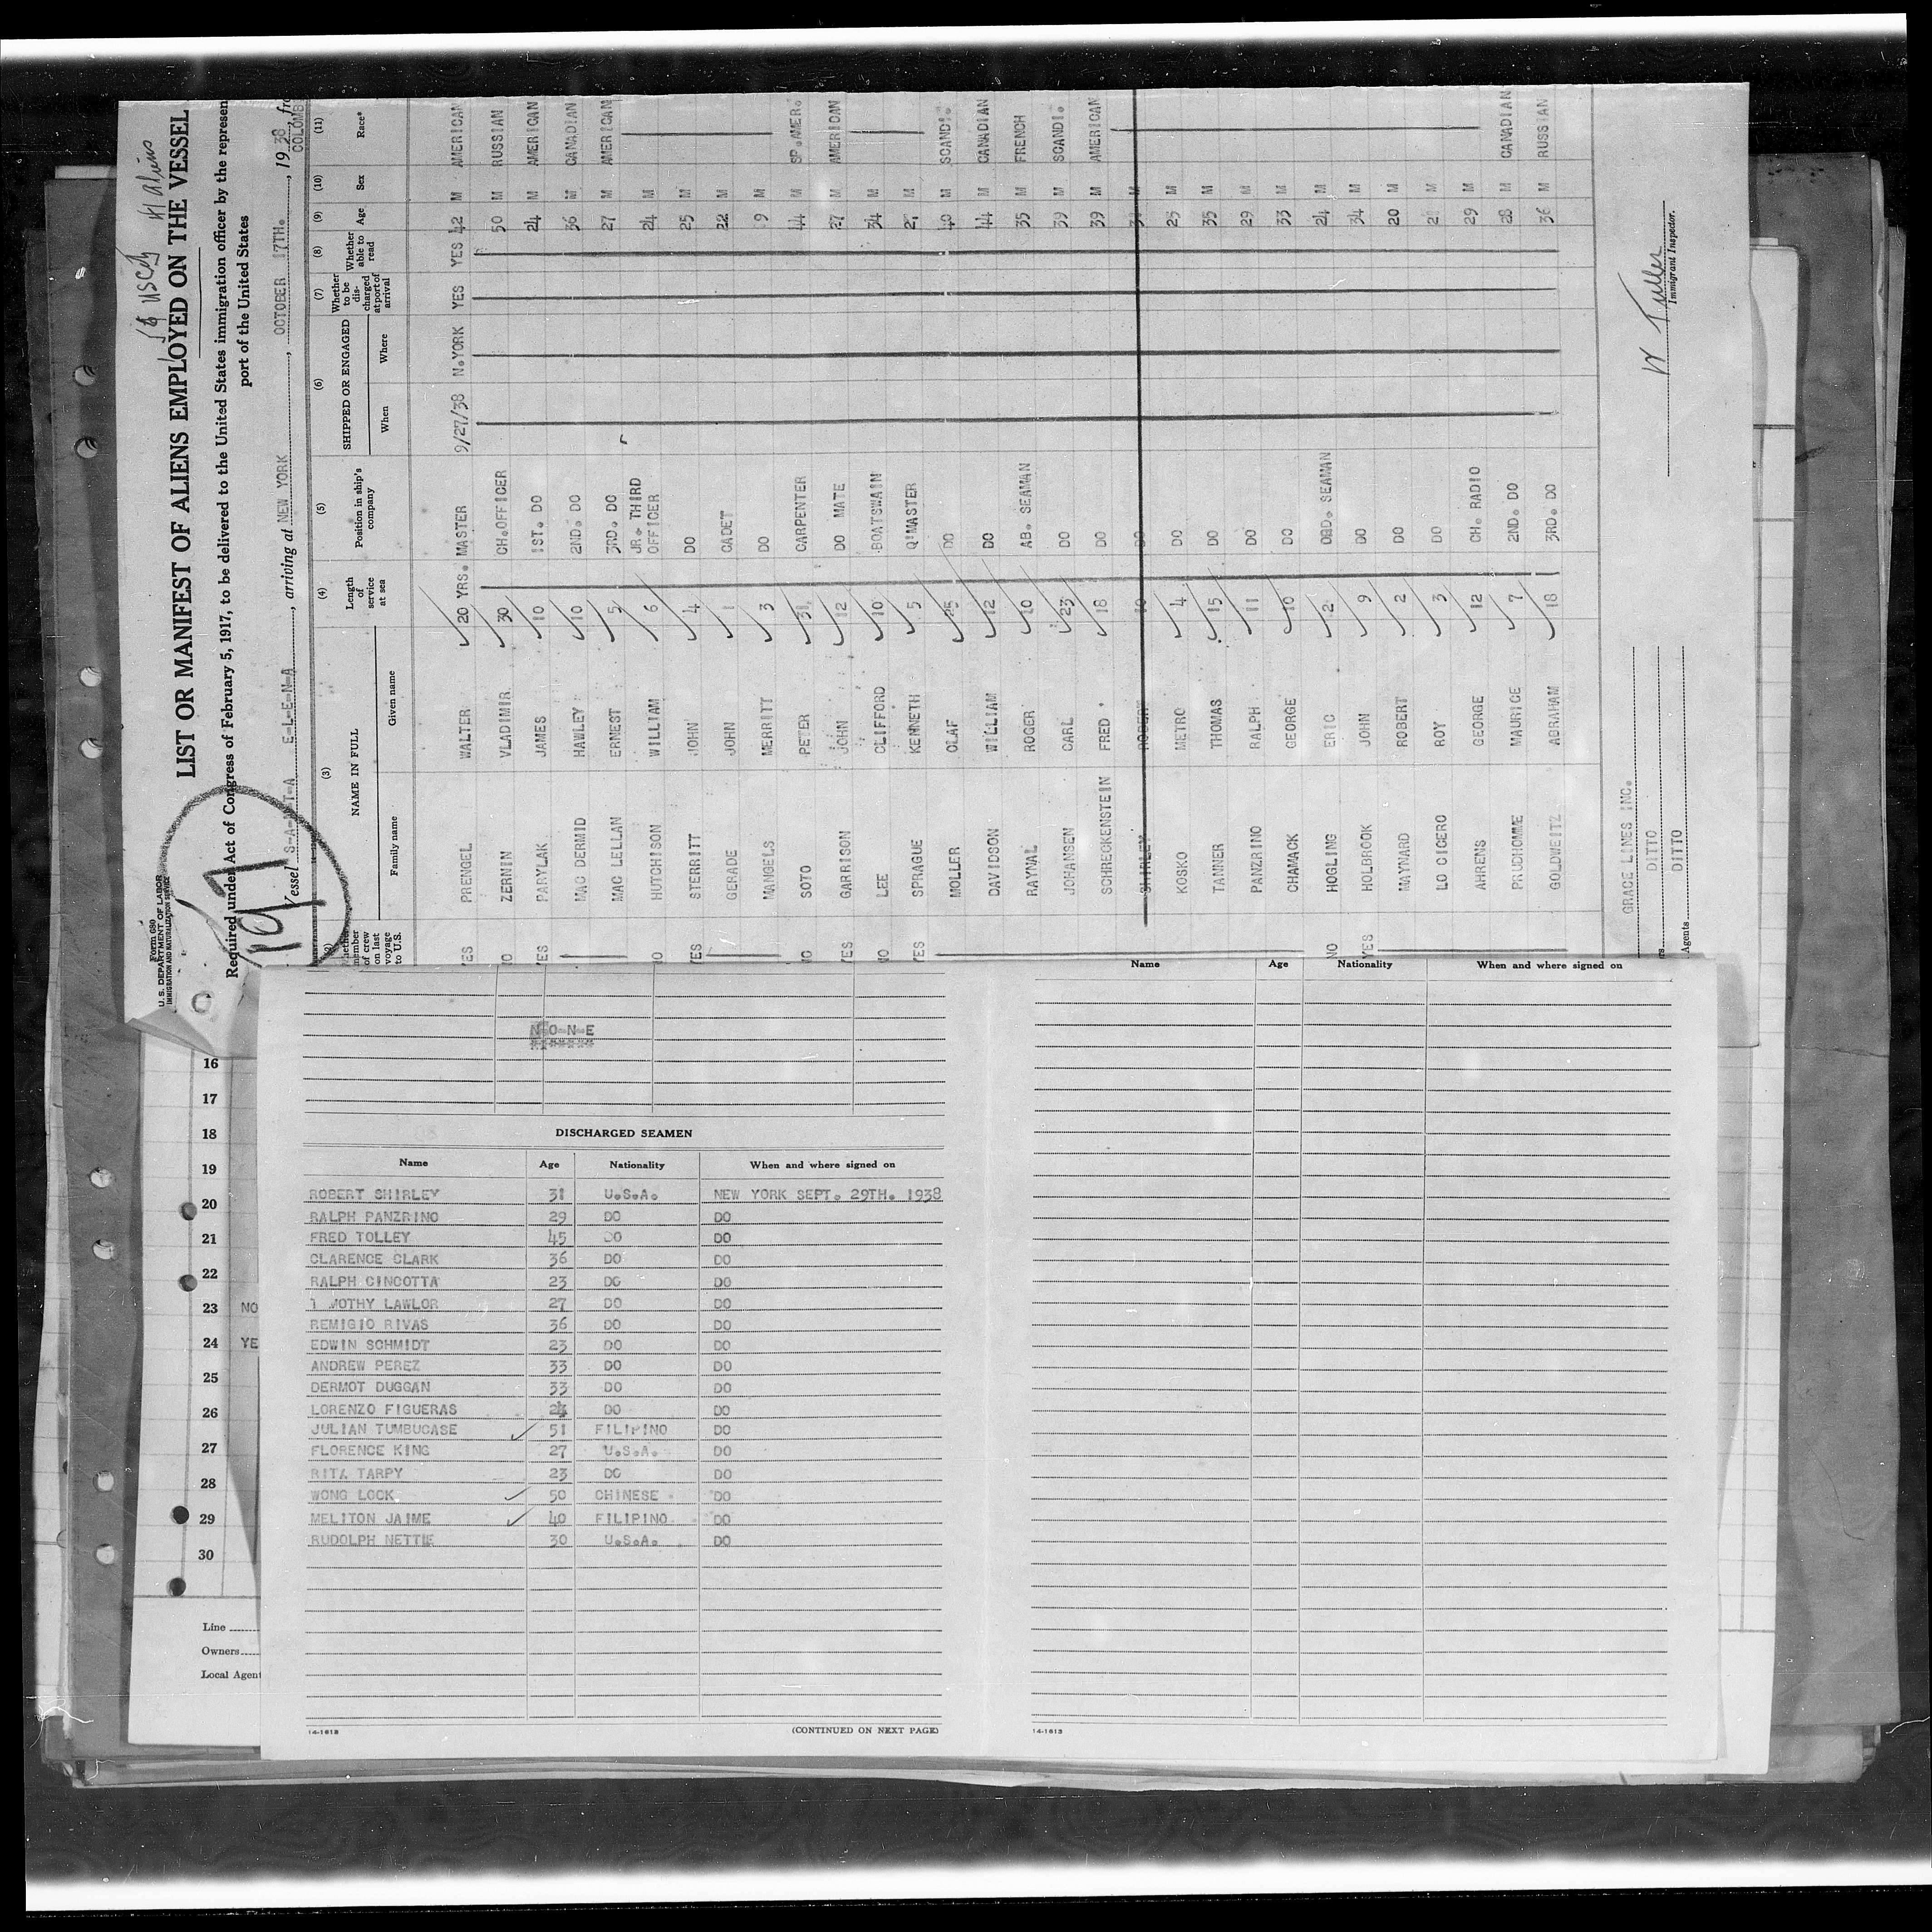 Form 680
U. S. DEPARTMENT OF LABOR
IMMIGRATION AND NATURALIZATION SERVICE
197
LIST OR MANIFEST OF ALIENS EMPLOYED ON THE VESSEL
Required under Act of Congress of February 5, 1917, to be delivered to the United States immigration officer by the represen
port of the United States
Vessel S-A-N-T-A E-L-E-N-A, arriving at NEW YORK, OCTOBER 17TH., 1938, fro
COLOMB
(2) (3) (4) (5) (6) (7) (8) (9) (10) (11)
Whether member of crew on last voyage to U.S. NAME IN FULL Family name Given name Length of service at sea Position in ship's company SHIPPED OR ENGAGED When Where Whether to be discharged at port of arrival Whether able to read Age Sex Race*
YES PRENGEL WALTER 20 YRS. MASTER 9/27/38 N.YORK YES YES 42 M AMERICAN
NO ZERNIN VLADIMIR 30 CH.OFFICER 50 M RUSSIAN
YES PARYLAK JAMES 10 1ST. DO 24 M AMERICAN
MAC DERMID HAWLEY 10 2ND. DO 36 M CANADIAN
MAC LELLAN ERNEST 5 3RD. DO 27 M AMERICAN
NO HUTCHISON WILLIAM 6 JR. THIRD OFFICER 24 M
YES STERRITT JOHN 4 DO 25 M
GERADE JOHN 1 CADET 22 M
MANGELS MERRITT 3 DO 9 M
NO SOTO PETER 31 CARPENTER 44 M SP.AMER.
YES GARRISON JOHN 12 DO MATE 27 M AMERICAN
NO LEE CLIFFORD 10 BOATSWAIN 34 M
YES SPRAGUE KENNETH 5 Q'MASTER 27 M
MOLLER OLAF 25 DO 40 M SCANDI.
DAVIDSON WILLIAM 12 DO 44 M CANADIAN
RAYNAL ROGER 10 AB. SEAMAN 35 M FRENCH
JOHANSEN CARL 23 DO 39 M SCANDI.
SCHRECKENSTEIN FRED 18 DO 39 M AMERICAN
SHIRLEY ROBERT 10 DO 31 M
KOSKO METRO 4 DO 25 M
TANNER THOMAS 15 DO 35 M
PANZRINO RALPH 11 DO 29 M
CHAMACK GEORGE 10 DO 33 M
NO HOGLING ERIC 2 ORD. SEAMAN 24 M
YES HOLBROOK JOHN 9 DO 34 M
MAYNARD ROBERT 2 DO 20 M
LO CICERO ROY 3 DO 2 M
AHRENS GEORGE 12 CH. RADIO 29 M
PRUDHOMME MAURICE 7 2ND. DO 28 M CANADIAN
GOLDWEITZ ABRAHAM 18 3RD. DO 36 M RUSSIAN
GRACE LINES INC.
DITTO
Agents DITTO
W Tuller
Immigrant Inspector.
16
17
18
19
20
21
22
23 NO
24 YE
25
26
27
28
29
30
Line
Owners
Local Agent
N-O-N-E
DISCHARGED SEAMEN
Name Age Nationality When and where signed on
ROBERT SHIRLEY 31 U.S.A. NEW YORK SEPT. 29TH. 1938
RALPH PANZRINO 29 DO DO
FRED TOLLEY 45 DO DO
CLARENCE CLARK 36 DO DO
RALPH CINCOTTA 23 DO DO
T MOTHY LAWLOR 27 DO DO
REMIGIO RIVAS 36 DO DO
EDWIN SCHMIDT 23 DO DO
ANDREW PEREZ 33 DO DO
DERMOT DUGGAN 33 DO DO
LORENZO FIGUERAS 24 DO DO
JULIAN TUMBUCASE 51 FILIPINO DO
FLORENCE KING 27 U.S.A. DO
RITA TARPY 23 DO DO
WONG LOCK 50 CHINESE DO
MELITON JAIME 40 FILIPINO DO
RUDOLPH NETTIE 30 U.S.A. DO
14-1613 (CONTINUED ON NEXT PAGE)
Name Age Nationality When and where signed on
14-1613